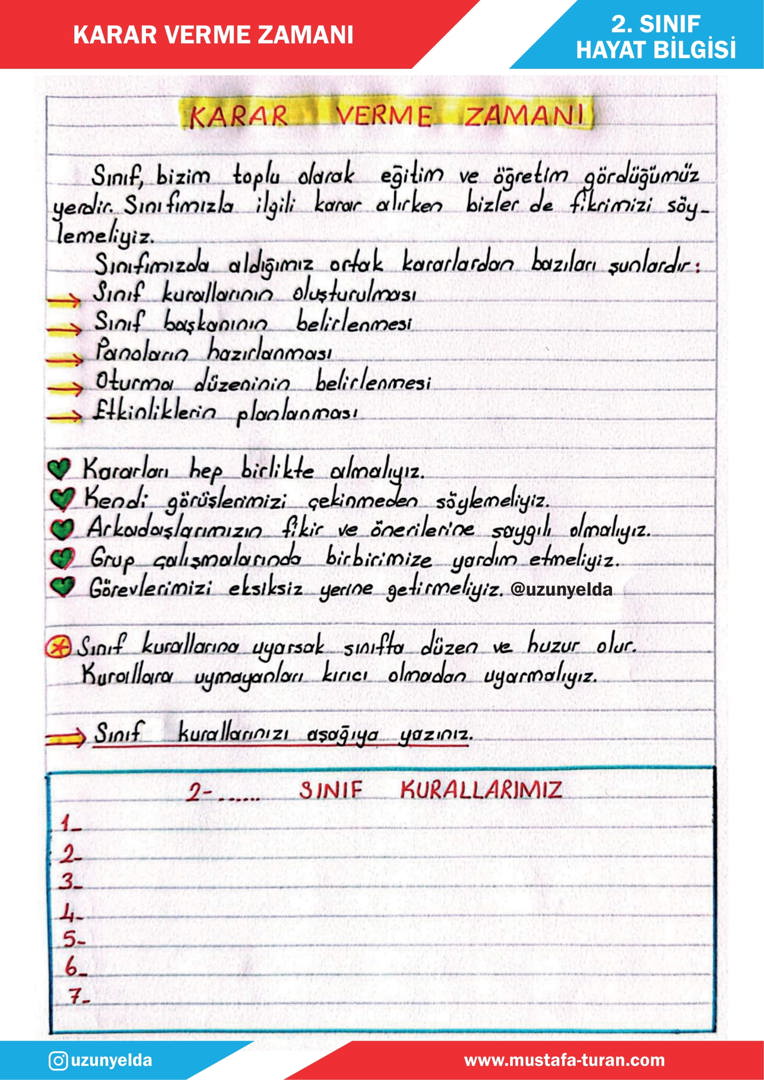 KARAR VERME ZAMANI
2. SINIF
HAYAT BİLGİSİ
KARAR VERME ZAMANI
Sınıf, bizim toplu olarak eğitim ve öğretim gördüğümüz
yerdir. Sınıfımızla ilgili karar alırken bizler de fikrimizi söy-
lemeliyiz.
Sınıfımızda aldığımız ortak kararlardan bazıları şunlardır:
Sınıf kurallarının oluşturulması
Sınıf başkanının belirlenmesi
Panoların hazırlanması
Oturma düzeninin belirlenmesi
Etkinliklerin planlanması
Kararları hep birlikte almalıyız.
Kendi görüşlerimizi çekinmeden söylemeliyiz.
Arkadaşlarımızın fikir ve önerilerine saygılı olmalıyız.
Grup çalışmalarında birbirimize yardım etmeliyiz.
Görevlerimizi eksiksiz yerine getirmeliyiz. @uzunyelda
Sınıf kurallarına uyarsak sınıfta düzen ve huzur olur.
Kurallara uymayanları kırıcı olmadan uyarmalıyız.
Sınıf kurallarınızı aşağıya yazınız.
2-...... SINIF KURALLARIMIZ
1-
2-
3-
4-
5-
6-
7-
uzunyelda
www.mustafa-turan.com